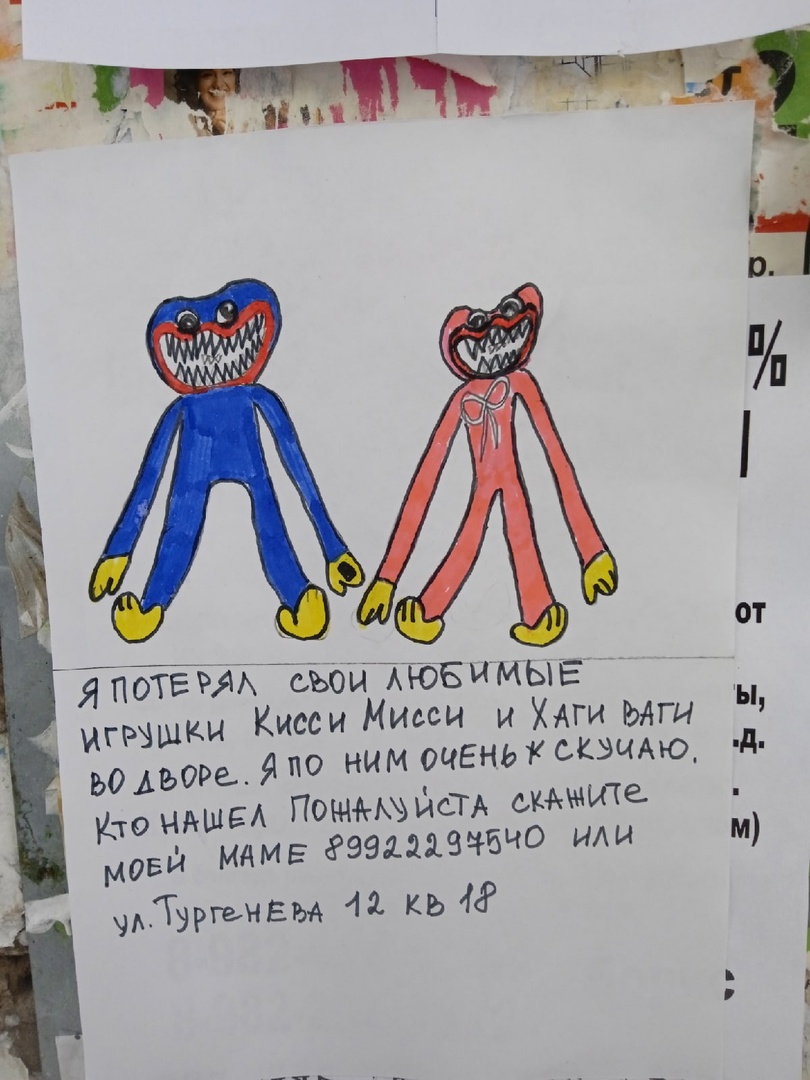 р.
%
от
ы,
.д.
.
м)
с
Я ПОТЕРЯЛ СВОИ ЛЮБИМЫЕ
ИГРУШКИ КИССИ МИССИ И ХАГИ ВАГИ
ВО ДВОРЕ. Я ПО НИМ ОЧЕНЬ СКУЧАЮ.
КТО НАШЕЛ ПОЖАЛУЙСТА СКАЖИТЕ
МОЕЙ МАМЕ 89922297540 ИЛИ
ул. ТУРГЕНЕВА 12 КВ 18